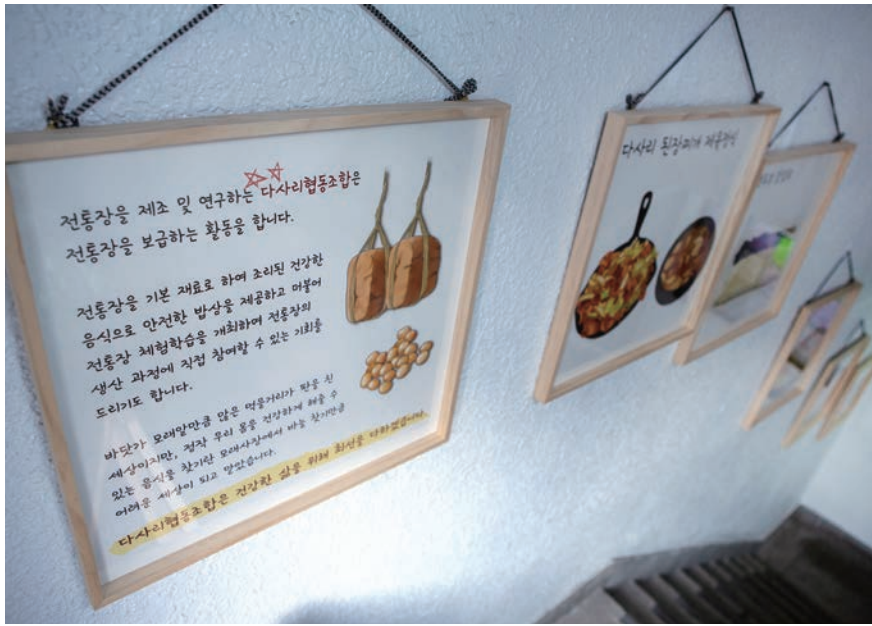 전통장을 제조 및 연구하는 다사리협동조합은
전통장을 보급하는 활동을 합니다.
전통장을 기본 재료로 하여 조리된 건강한
음식으로 안전한 밥상을 제공하고 더불어
전통장 체험학습을 개최하여 전통장의
생산 과정에 직접 참여할 수 있는 기회를
드리기도 합니다.
바닷가 모래알만큼 많은 먹을거리가 판을 친
세상이지만, 정작 우리 몸을 건강하게 해줄 수
있는 음식을 찾기란 모래사장에서 바늘 찾기만큼
어려운 세상이 되고 말았습니다.
다사리협동조합은 건강한 삶을 위해 최선을 다하겠습니다.
다사리 된장찌개 제육정식